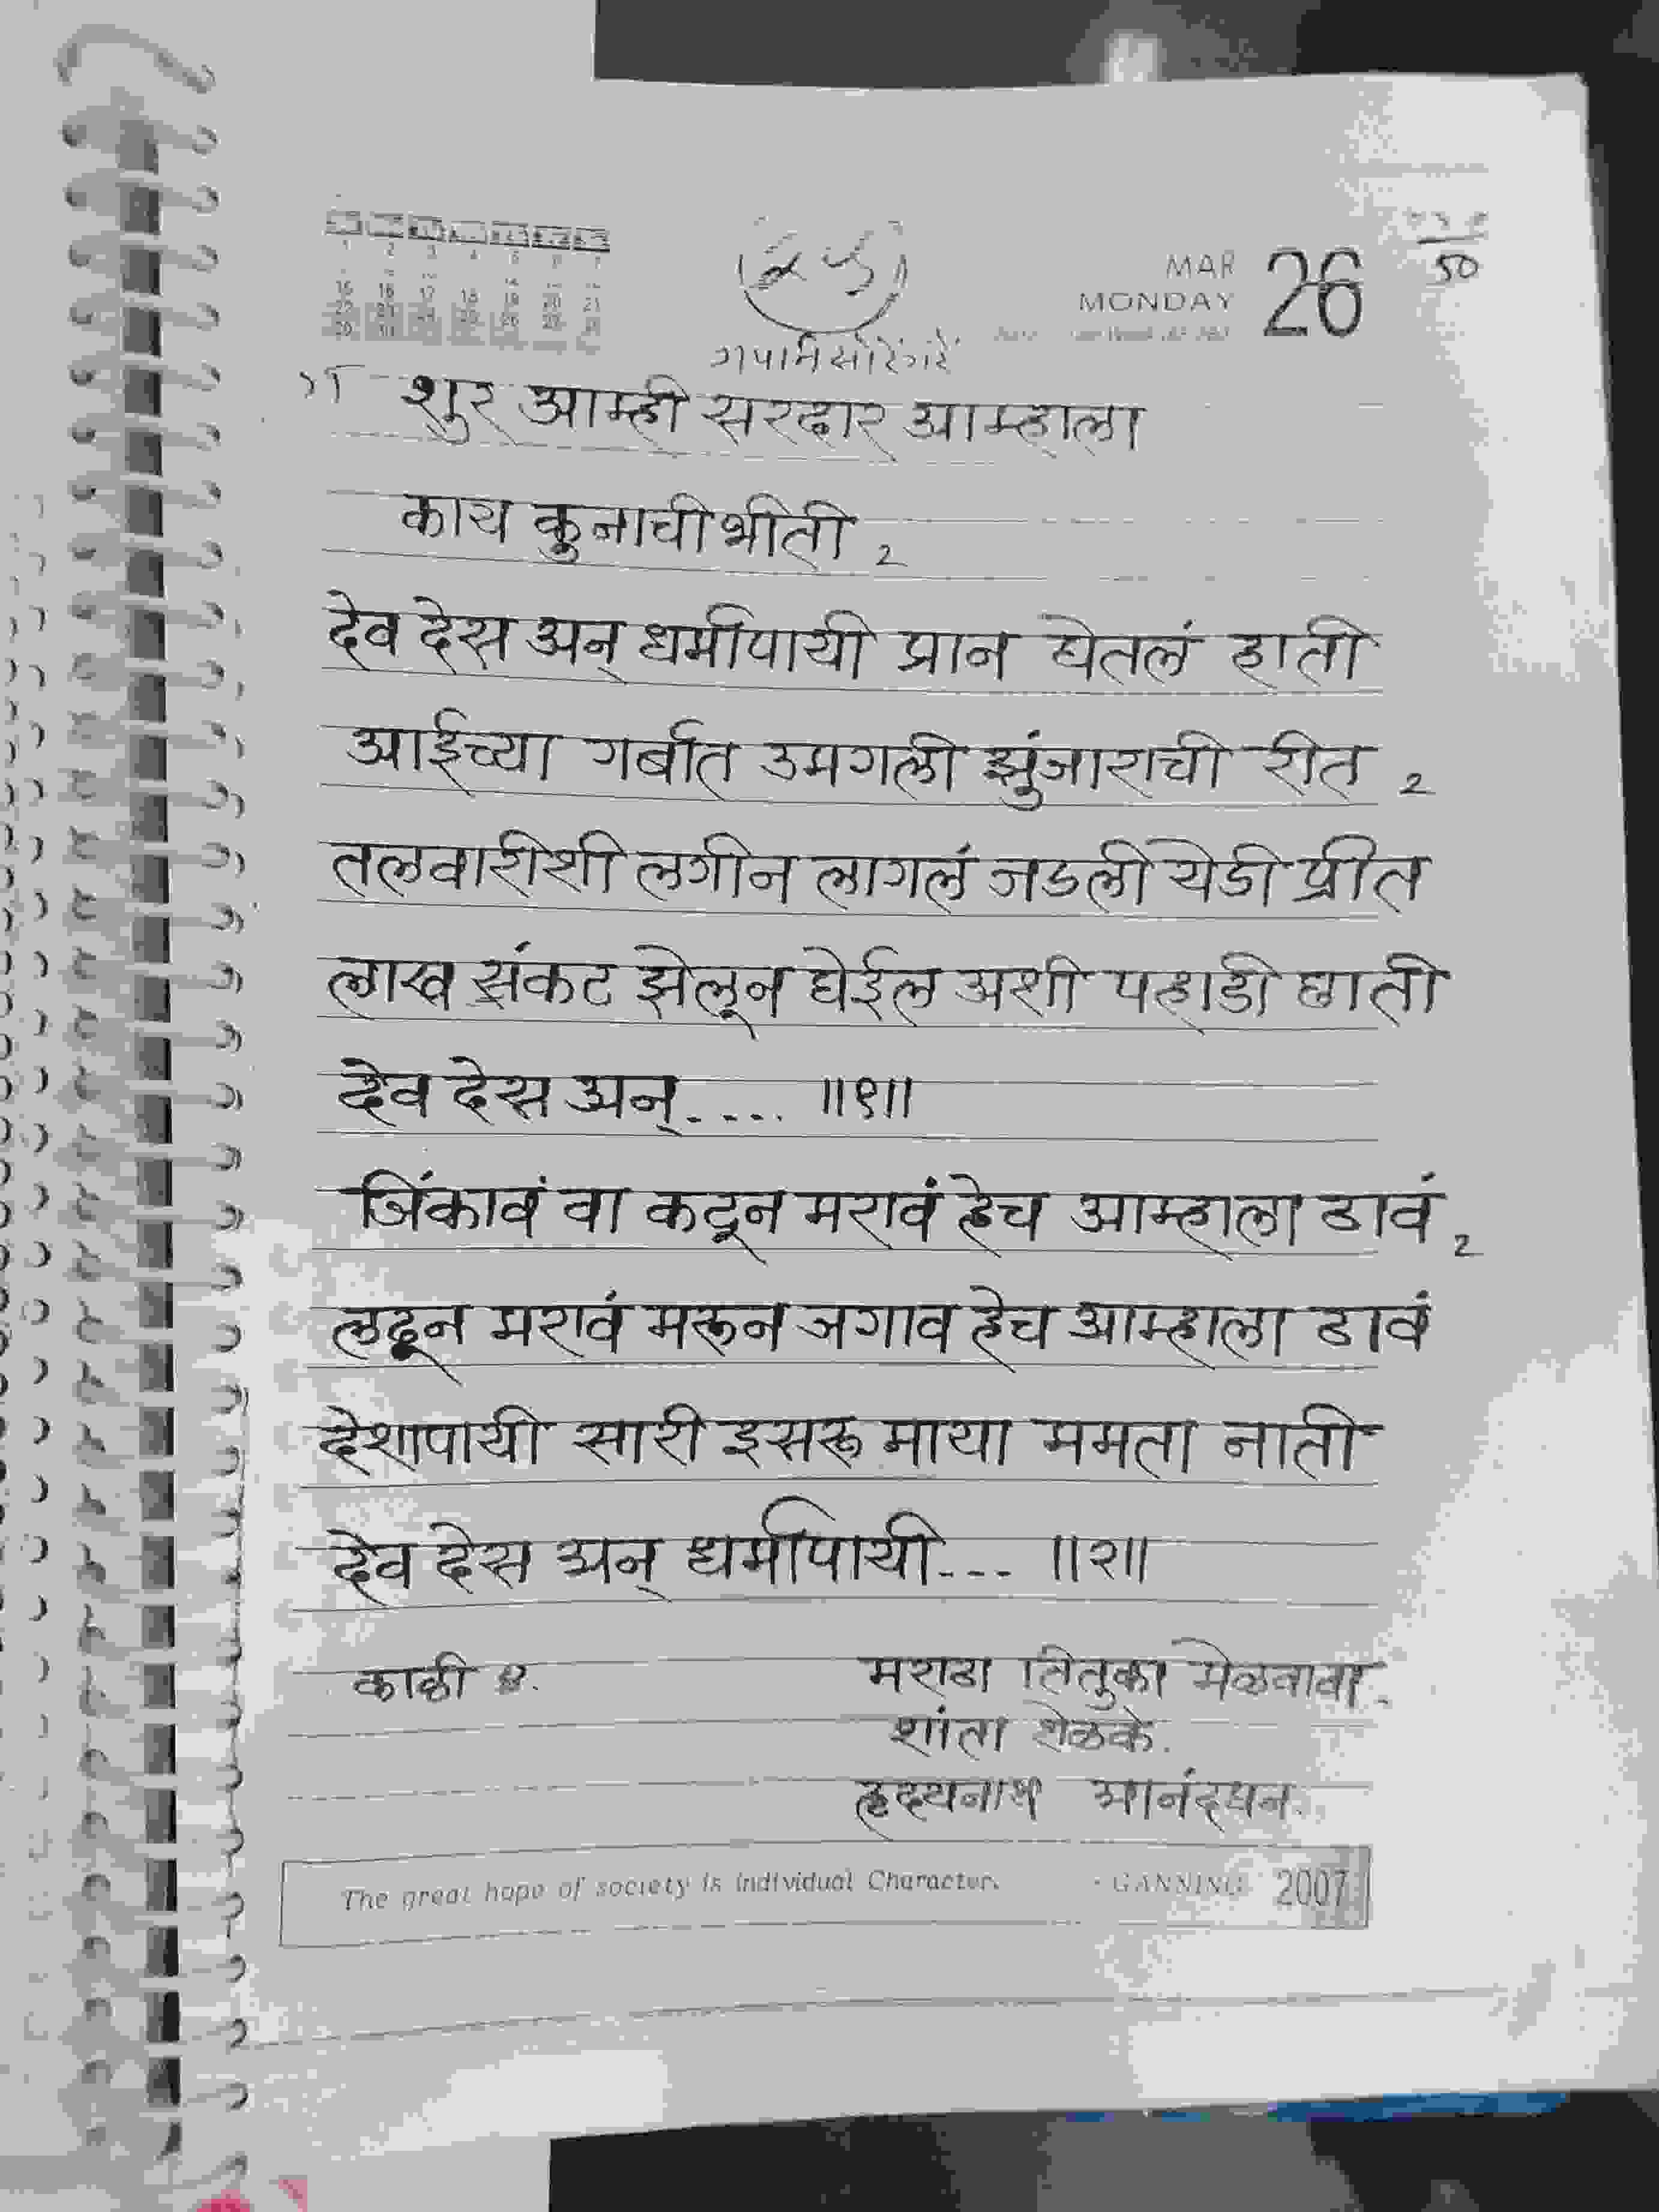 MAR
MONDAY 26
50
शुर आम्ही सरदार आम्हाला
काय कुनाची भीती 2
देव देस अन् धर्मापायी प्रान घेतलं हाती
आईच्या गर्बात उमगली झुंजाराची रीत 2
तलवारीशी लगीन लागलं जडली येडी प्रीत
लाख संकट झेलून घेईल अशी पहाडी छाती
देव देस अन्.... ॥१॥
जिंकावं वा कटून मरावं हेच आम्हाला ठावं 2
लढून मरावं मरून जगाव हेच आम्हाला ठावं
देशापायी सारी इसरू माया ममता नाती
देव देस अन् धर्मापायी... ॥२॥
काळी 4.
मराठा तितुका मेळवावा.
शांता शेळके.
हृदयनाथ आनंदघन.
The great hope of society is individual Character. - GANNING 2007